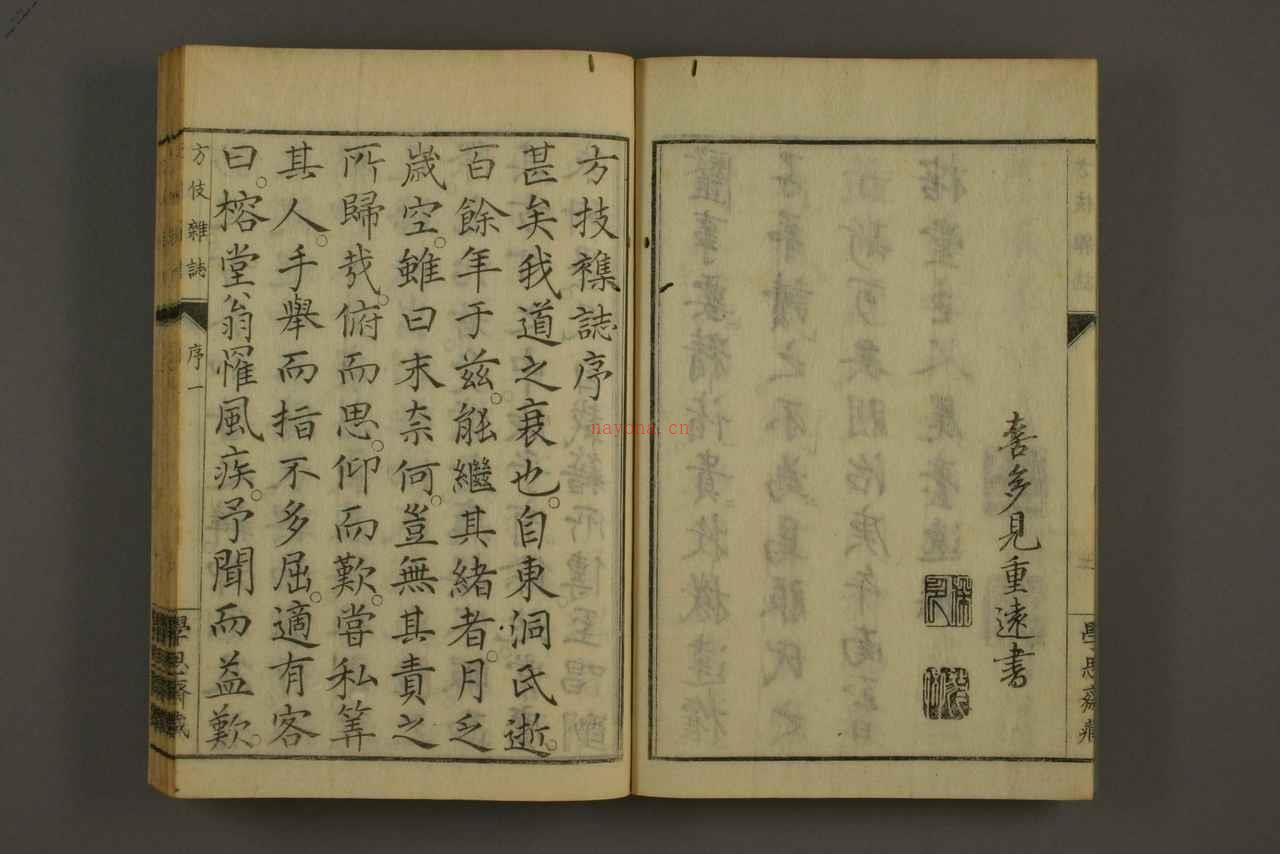 喜多見重遠書
方技襍誌序
甚矣我道之衰也。自東洞氏逝。
百餘年于茲。能繼其緒者。月乏
歲空。雖曰末奈何。豈無其責之
所歸哉。俯而思。仰而歎。嘗私筭
其人。手舉而指不多屈。適有客
曰。榕堂翁罹風疾。予聞而益歎。
方伎雜誌
序一
學思齋藏
nayona.cn